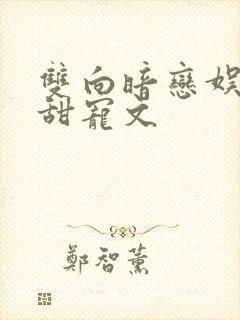 雙向暗戀娛
甜寵文
鄭智薰